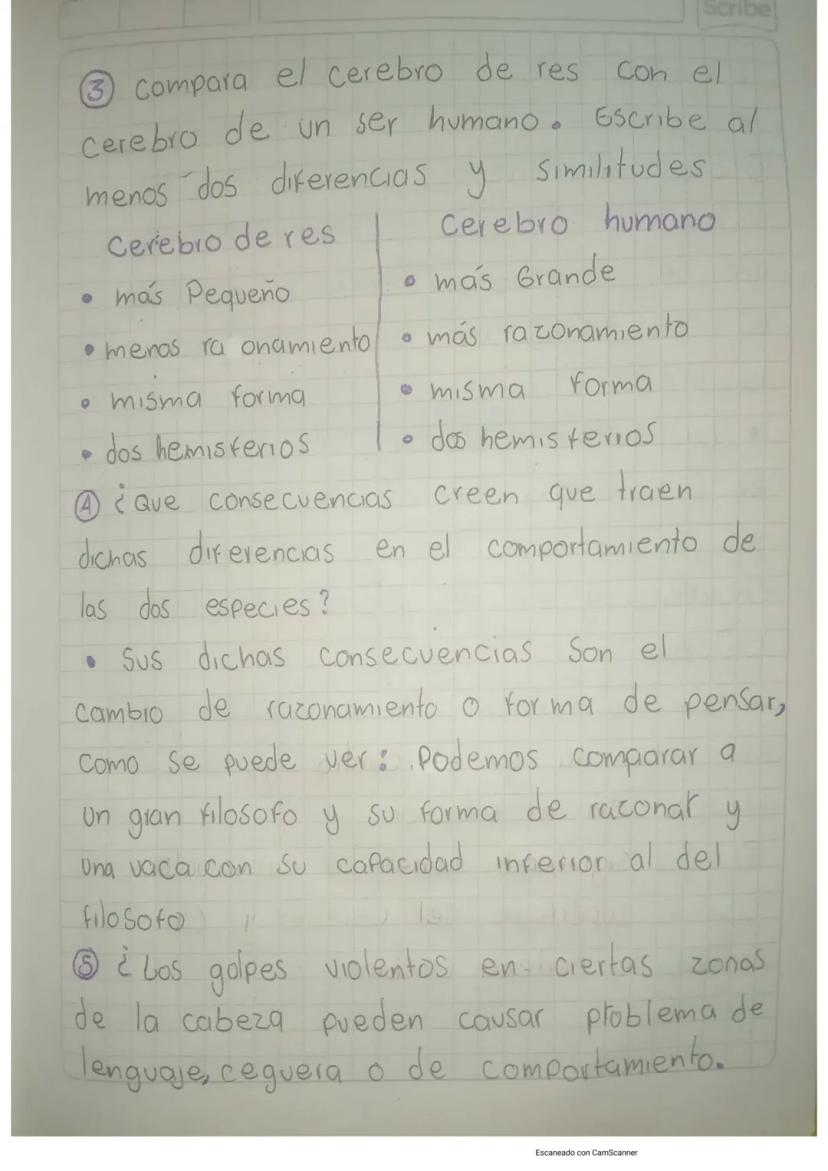 Scribe
③ compara el cerebro de res con el
cerebro de un ser humano. Escribe al
menos dos diferencias y similitudes
Cerebro de res
cerebro humano
• más Pequeño
• más Grande
• menos ra onamiento
• más razonamiento
• misma forma
• misma forma
• dos hemisferios
• dos hemisferios
④ ¿Que consecuencias creen que traen
dichas diferencias en el comportamiento de
las dos especies?
• Sus dichas consecuencias Son el
cambio de razonamiento o forma de pensar,
como se puede ver: Podemos comparar a
un gran filosofo y su forma de raconar y
una vaca con su capacidad inferior al del
filosofo
⑤ ¿Los golpes violentos en ciertas zonas
de la cabeza pueden causar problema de
lenguaje, ceguera o de comportamiento.
Escaneado con CamScanner